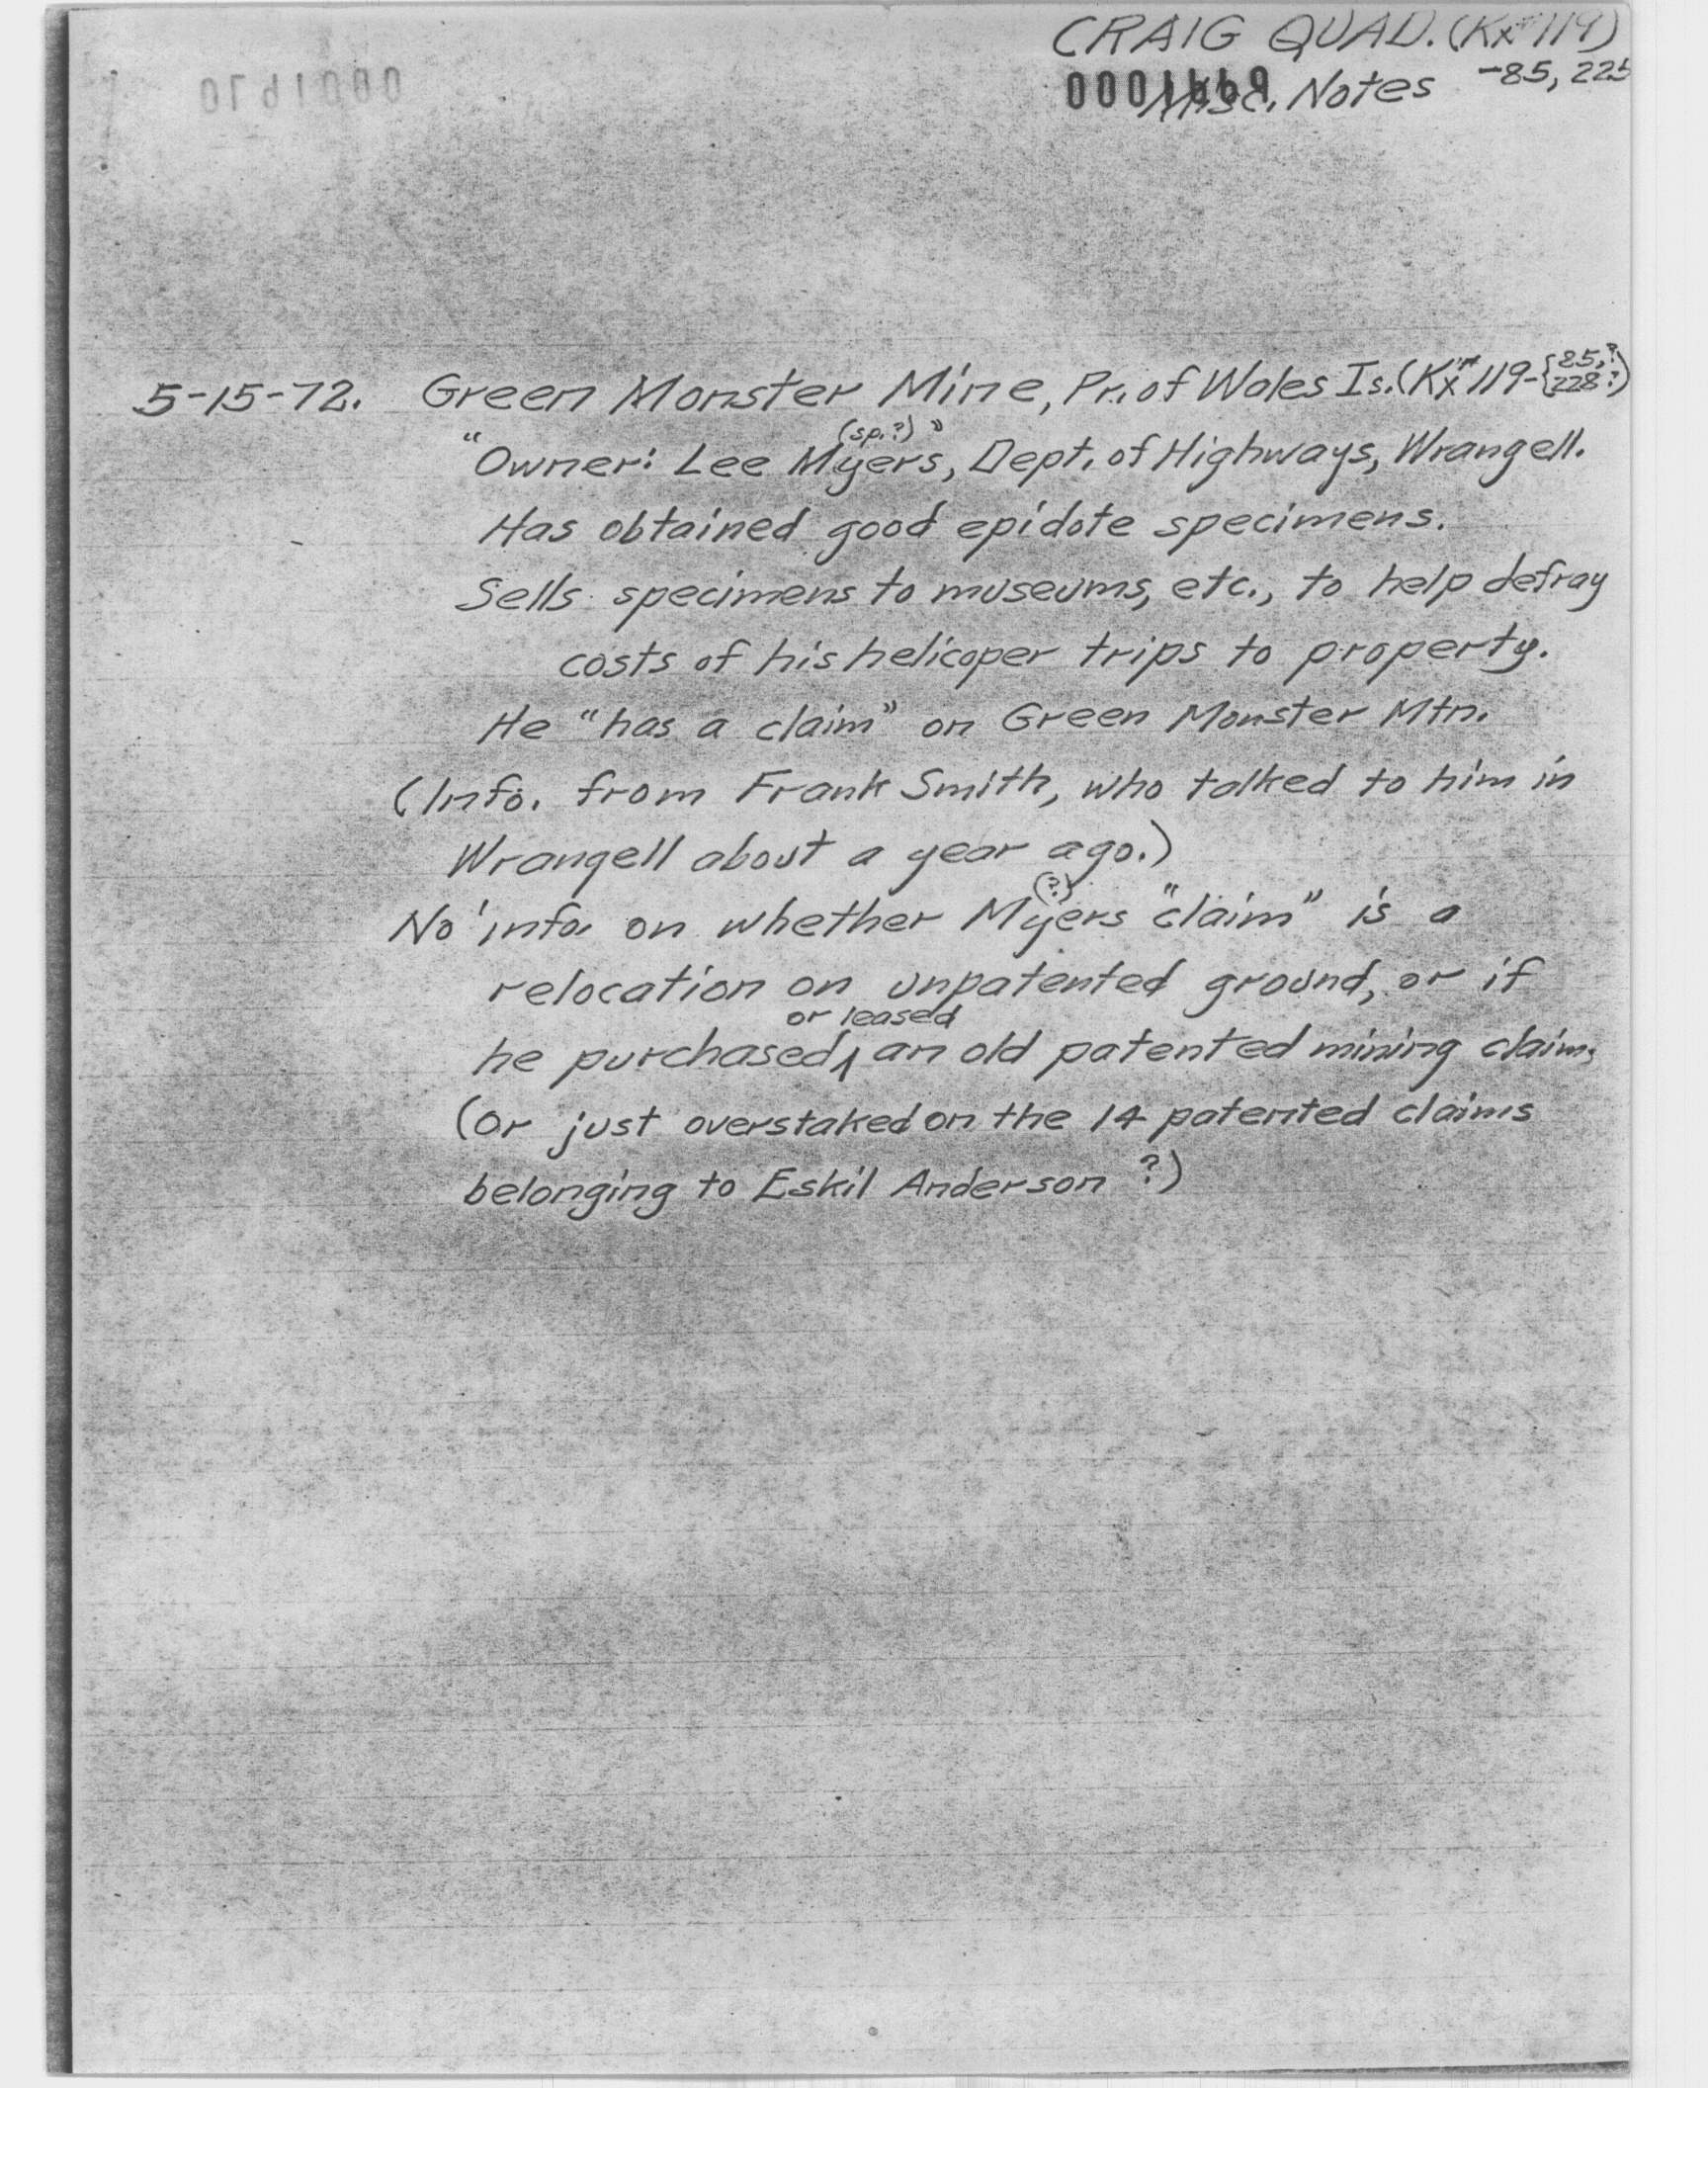 CRAIG QUAD. (Kx 119)
-85, 225
Misc. Notes
5-15-72. Green Monster Mine, Pr. of Wales Is. (Kx 119-{85,? 228?)
(sp.?)"
"Owner: Lee Myers, Dept. of Highways, Wrangell.
Has obtained good epidote specimens.
Sells specimens to museums, etc., to help defray
costs of his helicoper trips to property.
He "has a claim" on Green Monster Mtn.
(Info. from Frank Smith, who talked to him in
Wrangell about a year ago.)
(?)
No info. on whether Myers "claim" is a
relocation on unpatented ground, or if
or leased
he purchased an old patented mining claim,
(Or just overstaked on the 14 patented claims
belonging to Eskil Anderson ?)